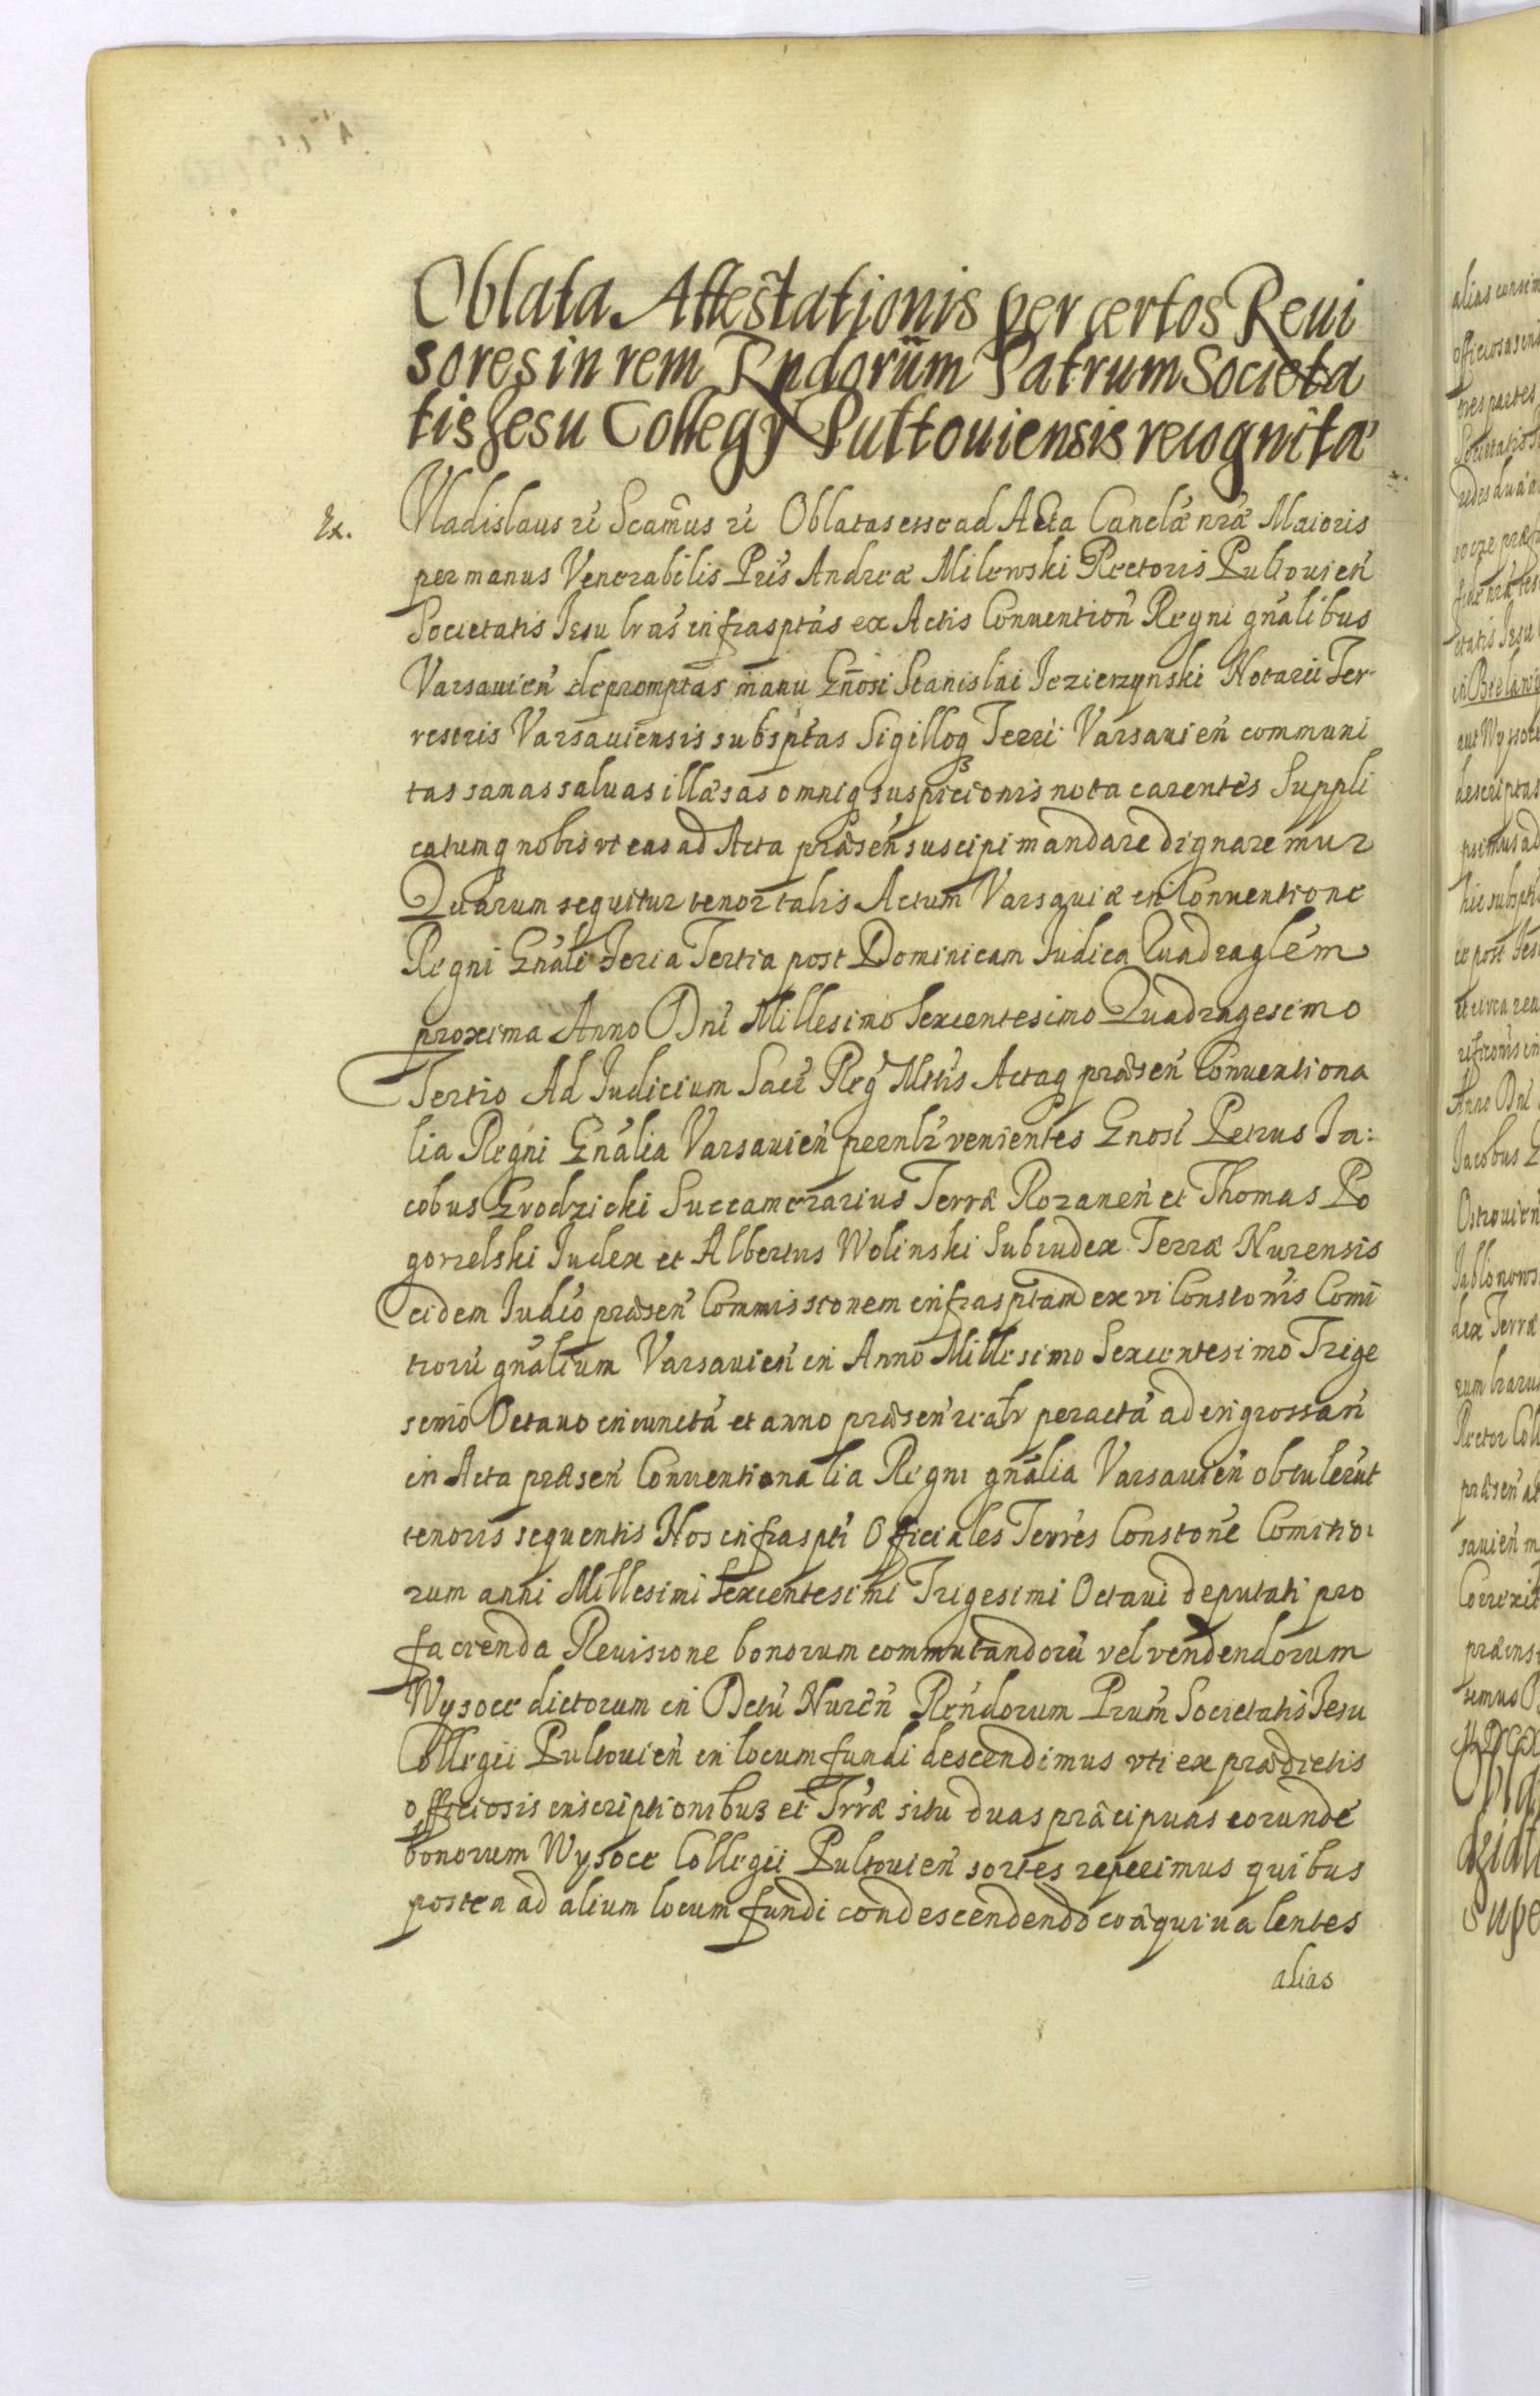 Oblata Attestationis per certos Reui
sores in rem Rndorum Patrum Societa
tis Jesu Collegy Pultouiensis recognita
Ex. Vladislaus ri Scamus ri Oblatas esse ad Acta Canclæ nræ Maioris
per manus Venerabilis Pris Andreæ Milewski Rectoris Pultouien
Societatis Jesu lras infrasptas ex Actis Conuention Regni gnalibus
Varsauien depromptas manu Gnosi Stanislai Jezierzynski Notarii Ter
restris Varsauiensis subsptas Sigilloq Terri Varsauien communi
tas sanas saluas illæsas omniq suspicionis nota carentes Suppli
catumq nobis vt eas ad Acta præsen suscipi mandare dignaremur
Quarum sequitur tenor talis Actum Varsauiæ in Conuentione
Regni Gnali Feria Tertia post Dominicam Judica Quadraglem
proxima Anno Dni Millesimo Sexcentesimo Quadragesimo
Tertio Ad Judicium Sacr Reg Mttis Actaq præsen Conuentiona
lia Regni Gnalia Varsauien pernlr venientes Gnosi Petrus Ja:
cobus Grodzicki Succamerarius Terræ Rozanen et Thomas Po
gorzelski Judex et Albertus Wolinski Subiudex Terræ Nurensis
eidem Judio præsen Commissionem infrasptam ex vi Constonis Comi
tioru gnalium Varsauien in Anno Millesimo Sexcentesimo Trige
simo Octauo in cuncta et anno præsen realr peracta ad ingrossan
in Acta præsen Conuentionalia Regni gnalia Varsauien obtulerut
tenoris sequentis Nos infraspti Officiales Terres Constone Comitio
rum anni Millesimi Sexcentesimi Trigesimi Octaui deputati pro
facienda Reuisione bonorum commutandoru vel vendendorum
Wysoce dictorum in Dctu Nuren Rendorum Prum Societatis Jesu
Collegii Pultouien in locum fundi descendimus vti ex prædictis
officiosis inscriptionibus et Trræ situ duas præcipuas eorunde
bonorum Wysoce Collegii Pultouien sortes reperimus quibus
postea ad alium locum fundi condescendendo coæquiualentes
alias